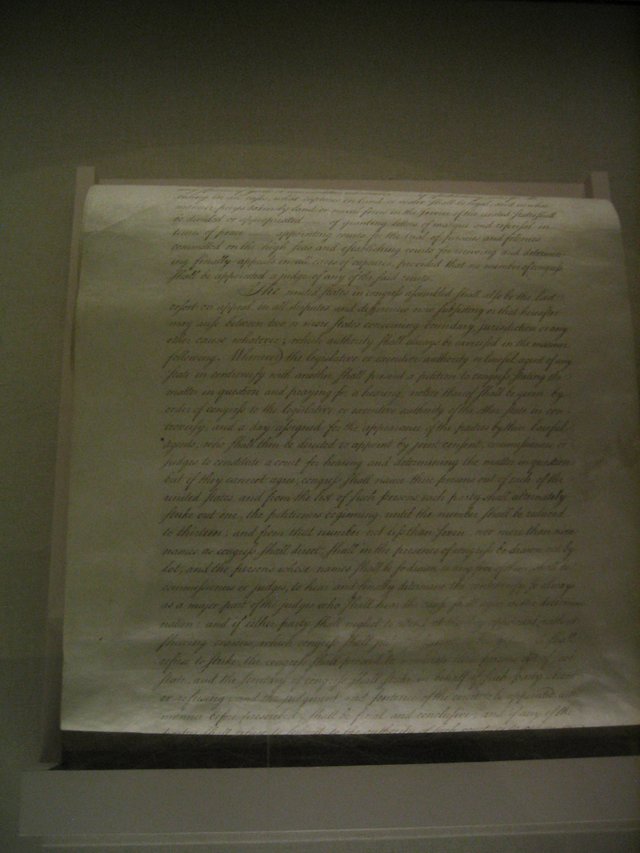 of granting letters of marque and reprisal in
times of peace appointing courts for the trial of piracies and felonies
committed on the high seas and establishing courts for receiving and determin-
ing finally appeals in all cases of captures, provided that no member of congress
shall be appointed a judge of any of the said courts.
The united states in congress assembled shall also be the last
resort on appeal in all disputes and differences now subsisting or that hereafter
may arise between two or more states concerning boundary, jurisdiction or any
other cause whatever; which authority shall always be exercised in the manner
following. Whenever the legislative or executive authority or lawful agent of any
state in controversy with another shall present a petition to congress stating the
matter in question and praying for a hearing, notice thereof shall be given by
order of congress to the legislative or executive authority of the other state in con
troversy, and a day assigned for the appearance of the parties by their lawful
agents, who shall then be directed to appoint by joint consent, commissioners or
judges to constitute a court for hearing and determining the matter in question:
but if they cannot agree, congress shall name three persons out of each of the
united states, and from the list of such persons each party shall alternately
strike out one, the petitioners beginning, until the number shall be reduced
to thirteen; and from that number not less than seven, nor more than nine
names as congress shall direct, shall in the presence of congress be drawn out by
lot, and the persons whose names shall be so drawn or any five of them, shall be
commissioners or judges, to hear and finally determine the controversy, so always
as a major part of the judges who shall hear the cause shall agree in the determi
nation: and if either party shall neglect to attend at the day appointed, without
shewing reasons, which congress shall shall
refuse to strike, the congress shall proceed to nominate three persons out of each
state, and the secretary of congress shall strike in behalf of such party absent
or refusing; and the judgment and sentence of the court to be appointed, in the
manner before prescribed, shall be final and conclusive; and if any of the